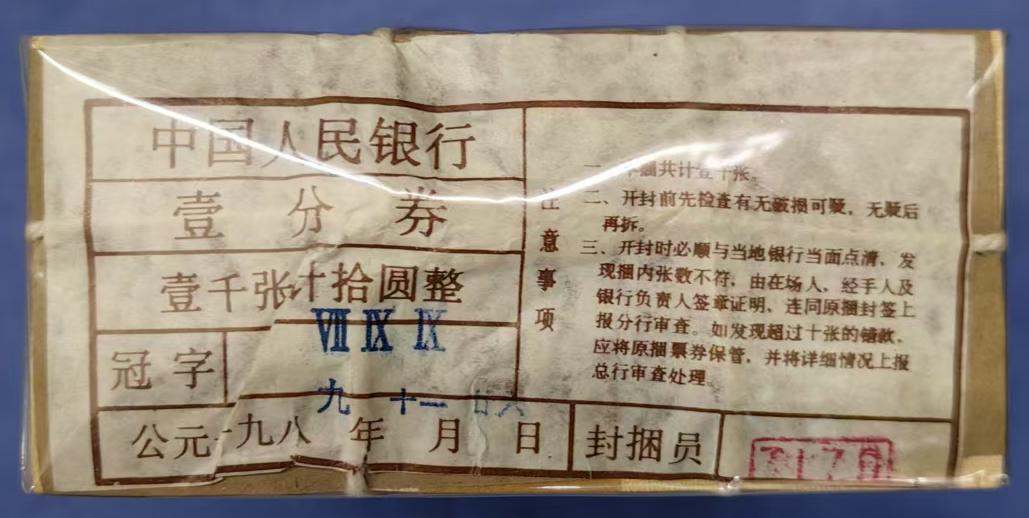 中国人民银行
壹分券
壹千张计拾圆整
冠字
Ⅶ Ⅸ Ⅸ
九 十一 廿六
公元一九八 年 月 日
封捆员
注意事项
捆共计壹千张。
二、开封前先检查有无破损可疑，无疑后
再拆。
三、开封时必顺与当地银行当面点清，发
现捆内张数不符，由在场人，经手人及
银行负责人签章证明，连同原捆封签上
报分行审查。如发现超过十张的错款，
应将原捆票券保管，并将详细情况上报
总行审查处理。